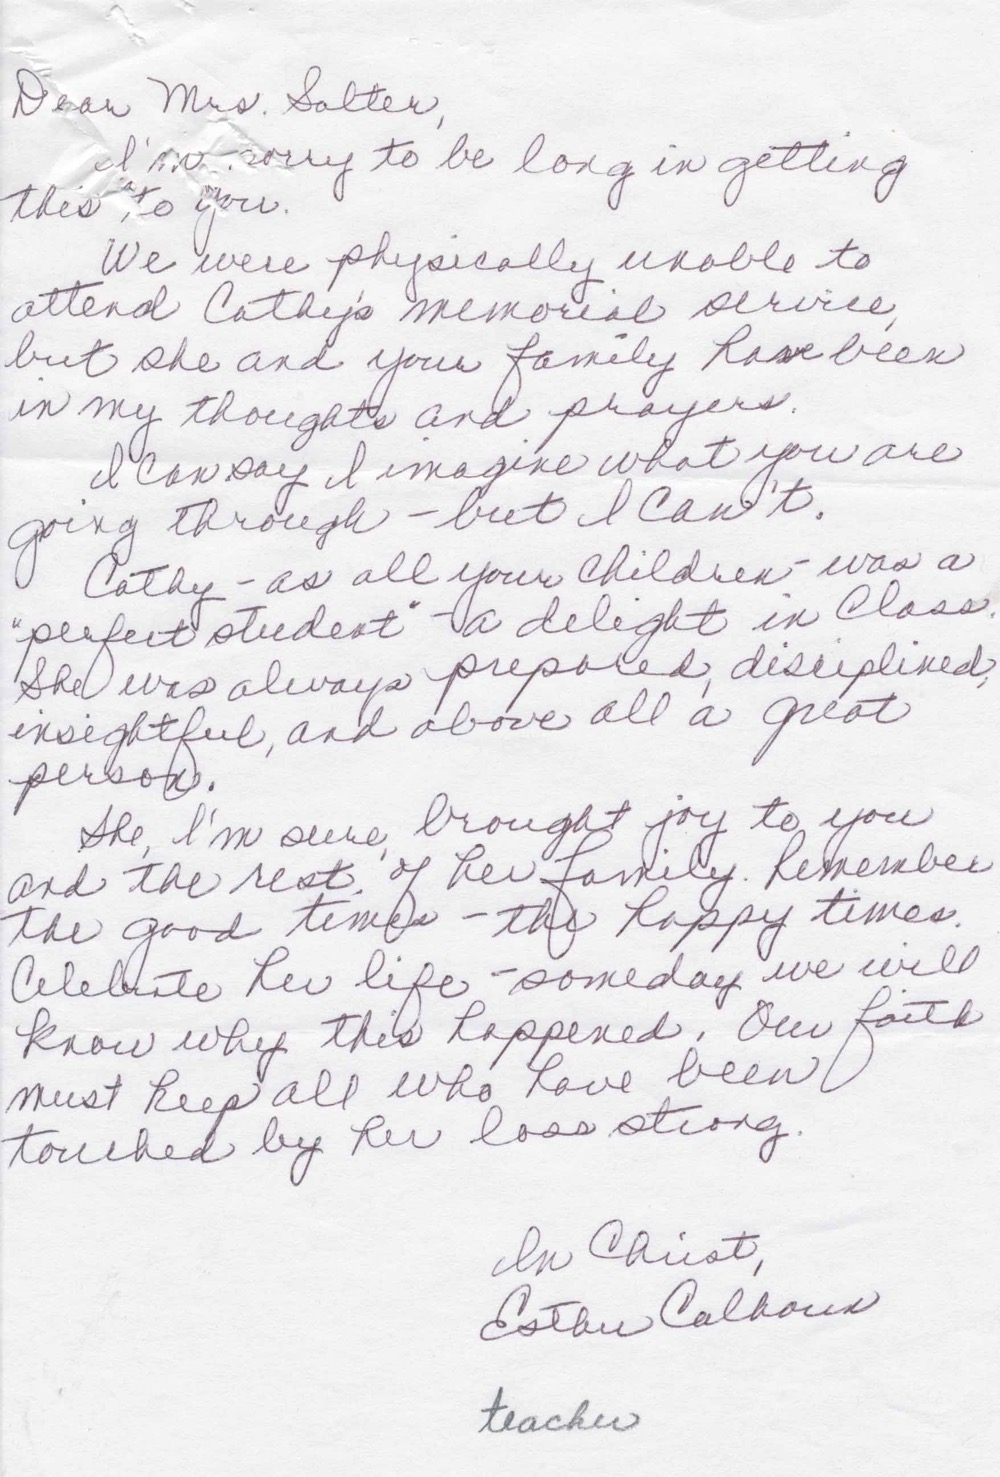 Dear Mrs. Salter,
I'm sorry to be long in getting
this to you.
We were physically unable to
attend Cathy's memorial service,
but she and your family have been
in my thoughts and prayers.
I can say I imagine what you are
going through - but I can't.
Cathy - as all your children - was a
"perfect student" - a delight in class.
She was always prepared, disciplined,
insightful, and above all a great
person.
She, I'm sure, brought joy to you
and the rest of her family. Remember
the good times - the happy times.
Celebrate her life - someday we will
know why this happened. Our faith
must keep all who have been
touched by her loss strong.
In Christ,
Esther Calhoun
teacher